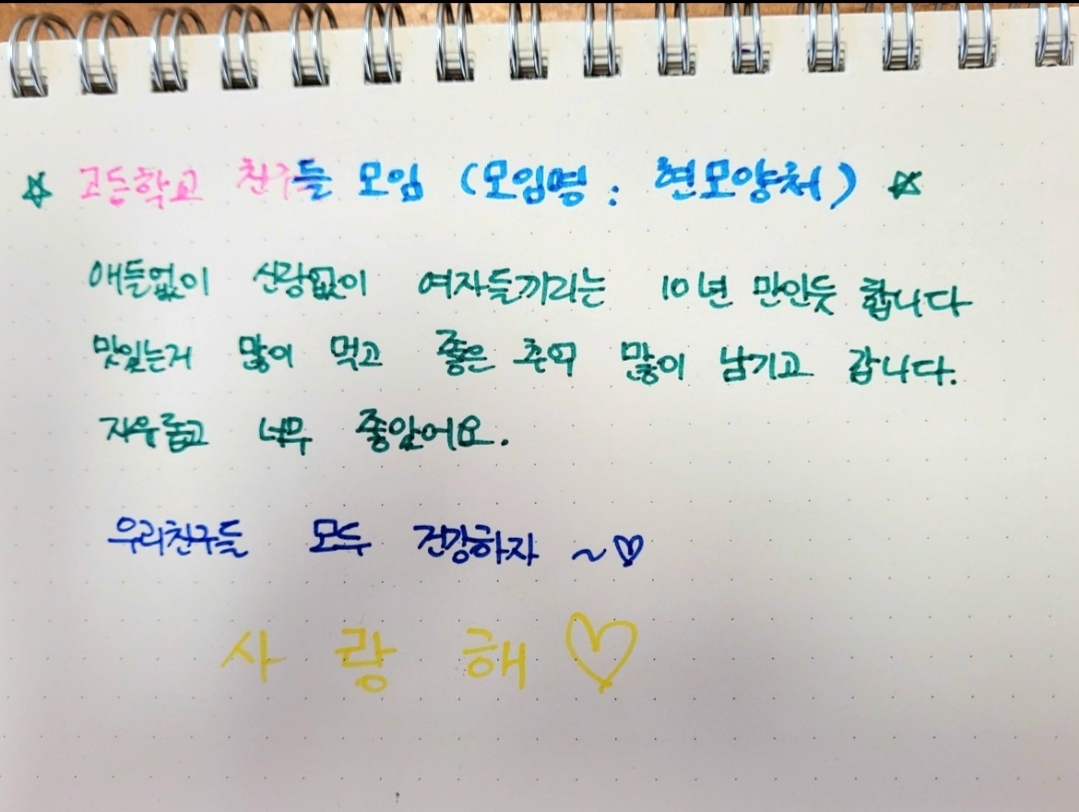 ☆ 고등학교 친구들 모임 (모임명 : 현모양처) ☆
애들없이 신랑없이 여자들끼리는 10년 만인듯 합니다
맛있는거 많이 먹고 좋은 추억 많이 남기고 갑니다.
자유롭고 너무 좋았어요.
우리친구들 모두 건강하자 ~♡
사랑해♡